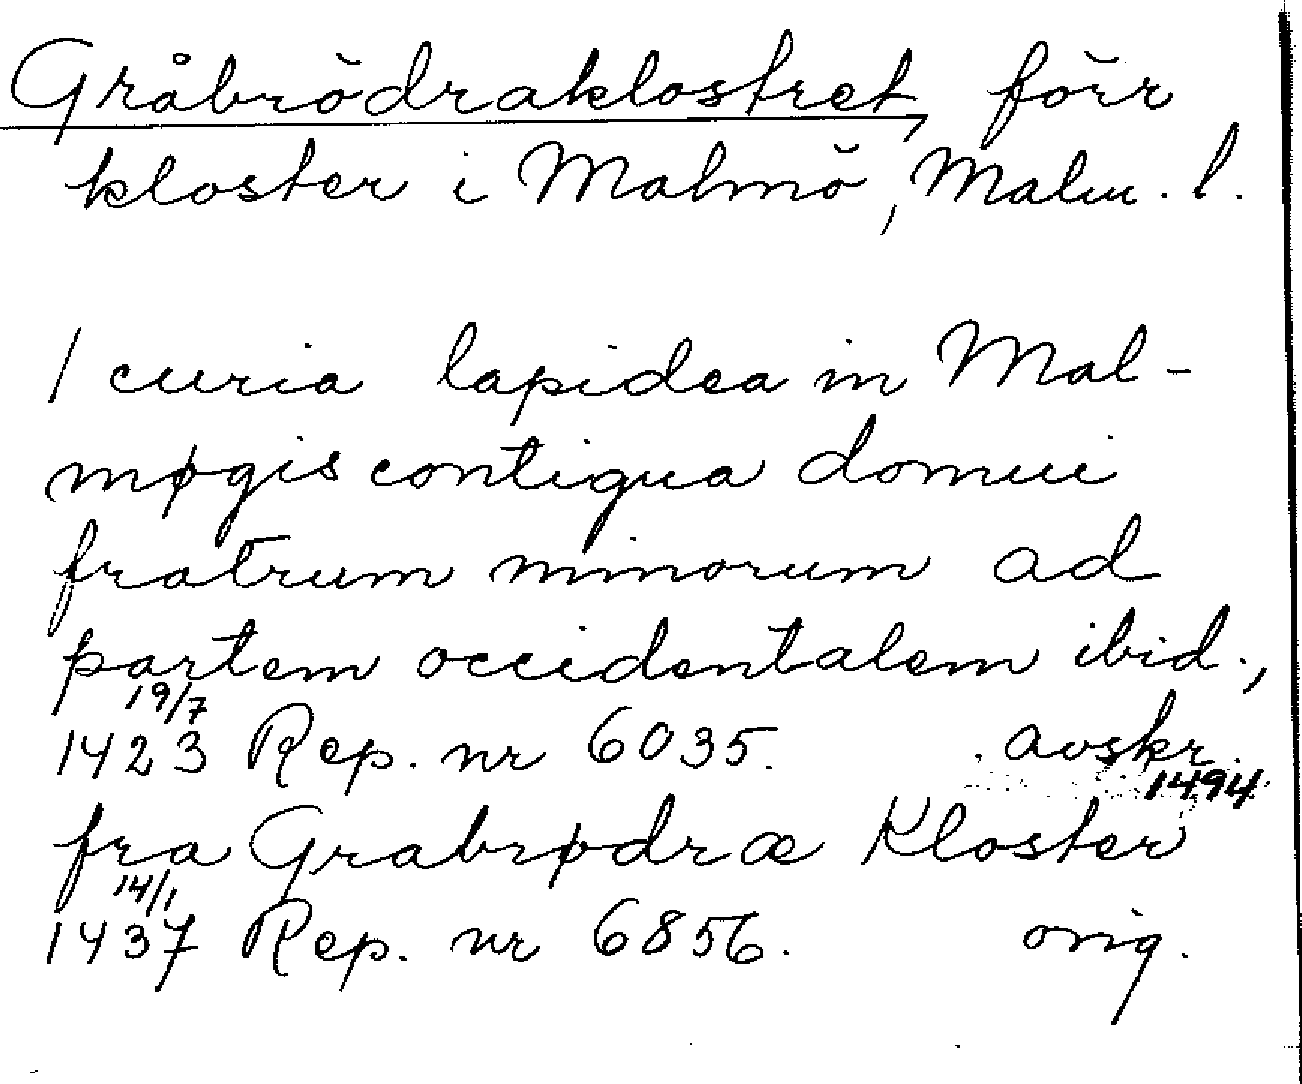 Gråbrödraklostret, förr
kloster i Malmö, Malm. l.
1 curia lapidea in Mal-
møgis contigua domui
fratrum minorum ad
partem occidentalem ibid.,
19/7
1423 Rep. nr 6035. avskr.
1494
fra Grabrødræ Kloster
14/1
1437 Rep. nr 6856. orig.